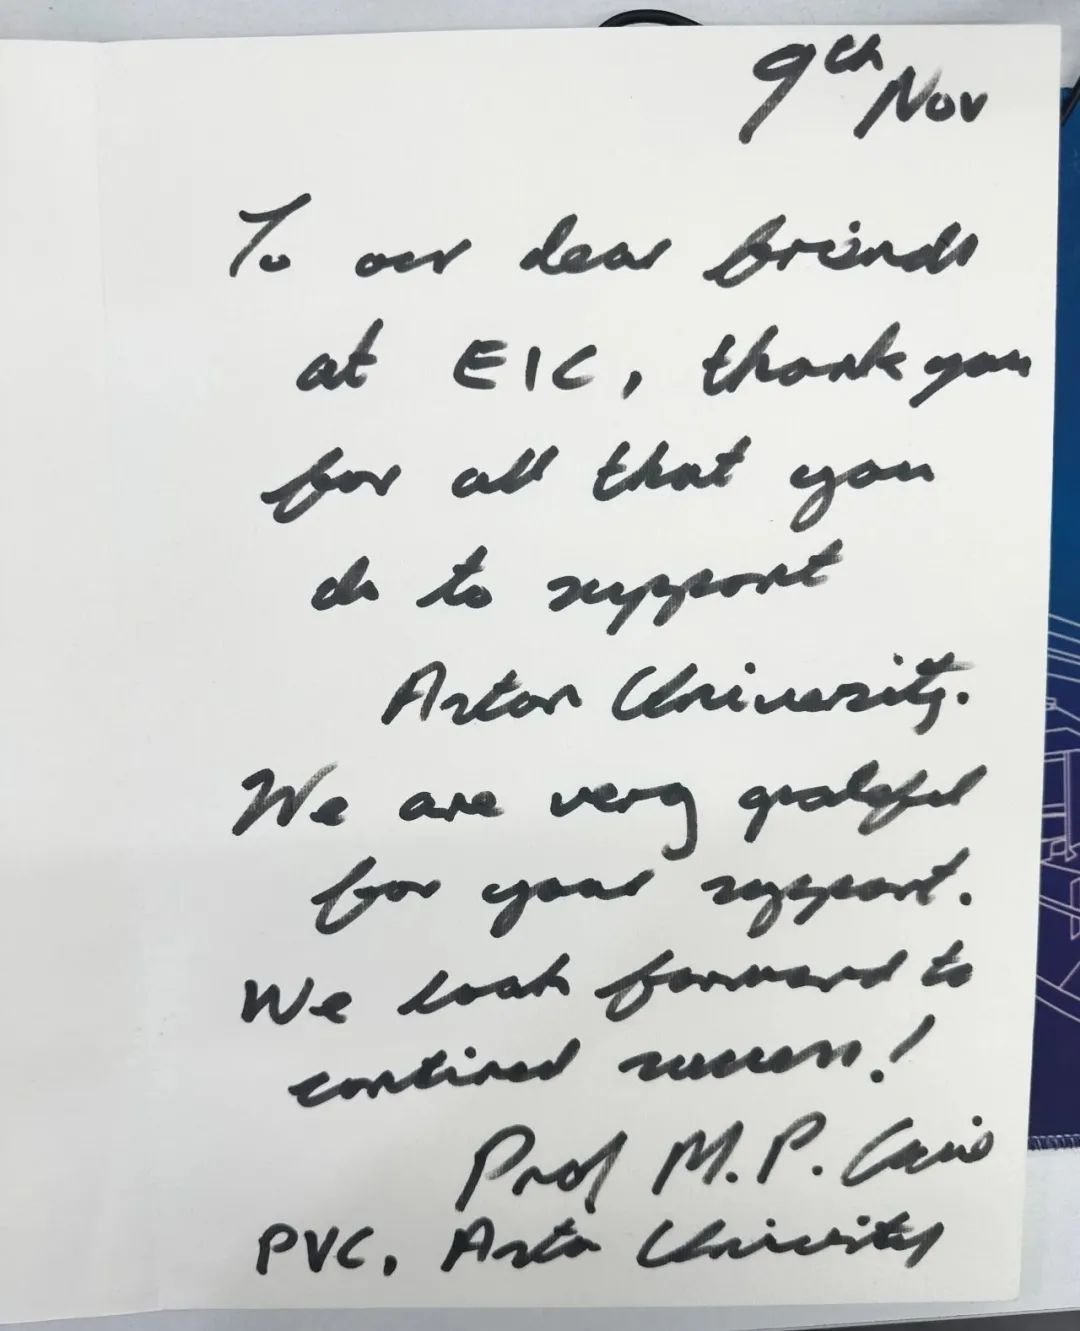 9th Nov
To our dear friends
at EIC, thank you
for all that you
do to support
Aston University.
We are very grateful
for your support.
We look forward to
continued success!
Prof M. P.
PVC, Aston University